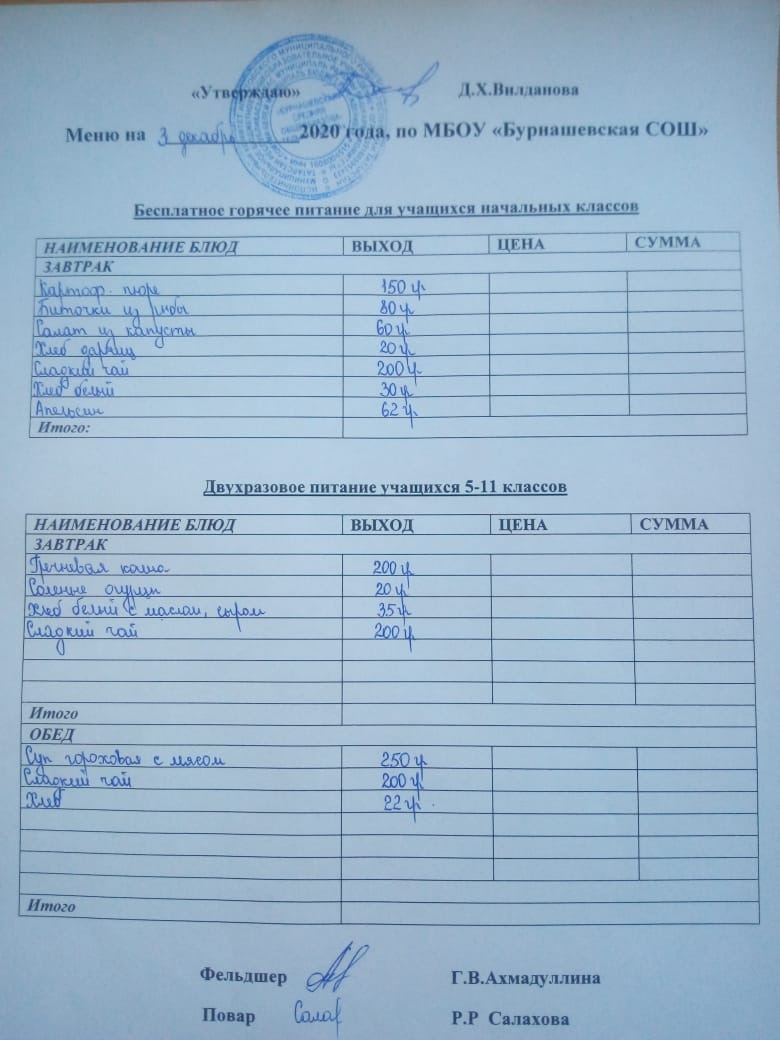 «Утверждаю» Д.Х.Вилданова
Меню на 3 декабря 2020 года, по МБОУ «Бурнашевская СОШ»
Бесплатное горячее питание для учащихся начальных классов
НАИМЕНОВАНИЕ БЛЮД ВЫХОД ЦЕНА СУММА
ЗАВТРАК
Картоф. пюре 150 г
Биточки из рыбы 80 г
Салат из капусты 60 г
Хлеб дарниц 20 г
Сладкий чай 200 г
Хлеб белый 30 г
Апельсин 62 г.
Итого:
Двухразовое питание учащихся 5-11 классов
НАИМЕНОВАНИЕ БЛЮД ВЫХОД ЦЕНА СУММА
ЗАВТРАК
Гречневая каша 200 г
Соленые огурцы 20 г
Хлеб белый с маслом, сыром 35 г
Сладкий чай 200 г
Итого
ОБЕД
Суп гороховая с мясом 250 г
Сладкий чай 200 г
Хлеб 22 г.
Итого
Фельдшер Г.В.Ахмадуллина
Повар Салах Р.Р Салахова